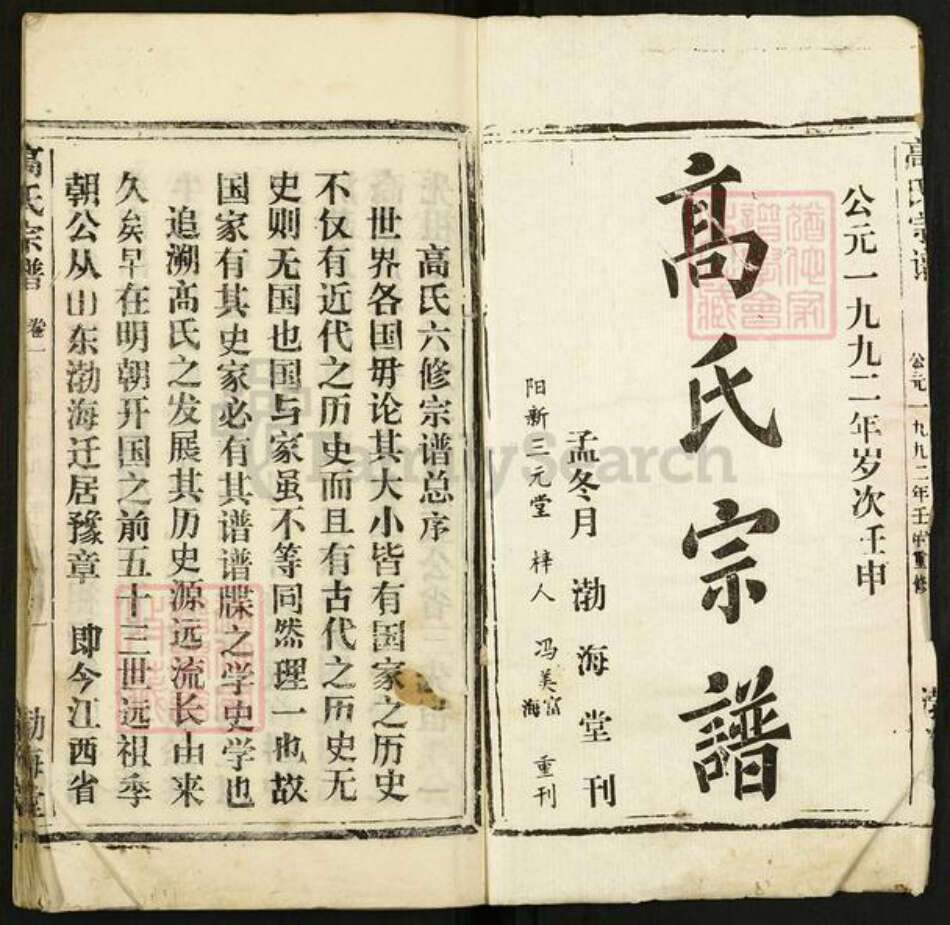 公元一九九二年岁次壬申
高氏宗譜
孟冬月 渤海堂刊
阳新三元堂 梓人 冯美富海 重刊
高氏宗谱
公元一九九二年壬申重修
高氏六修宗谱总序
世界各国毋论其大小皆有国家之历史
不仅有近代之历史而且有古代之历史无
史则无国也国与家虽不等同然理一也故
国家有其史家必有其谱谱牒之学史学也
追溯高氏之发展其历史源远流长由来
久矣早在明朝开国之前五十三世远祖季
朝公从山东渤海迁居豫章 即今江西省
高氏宗谱 卷一 渤海堂
FamilySearch